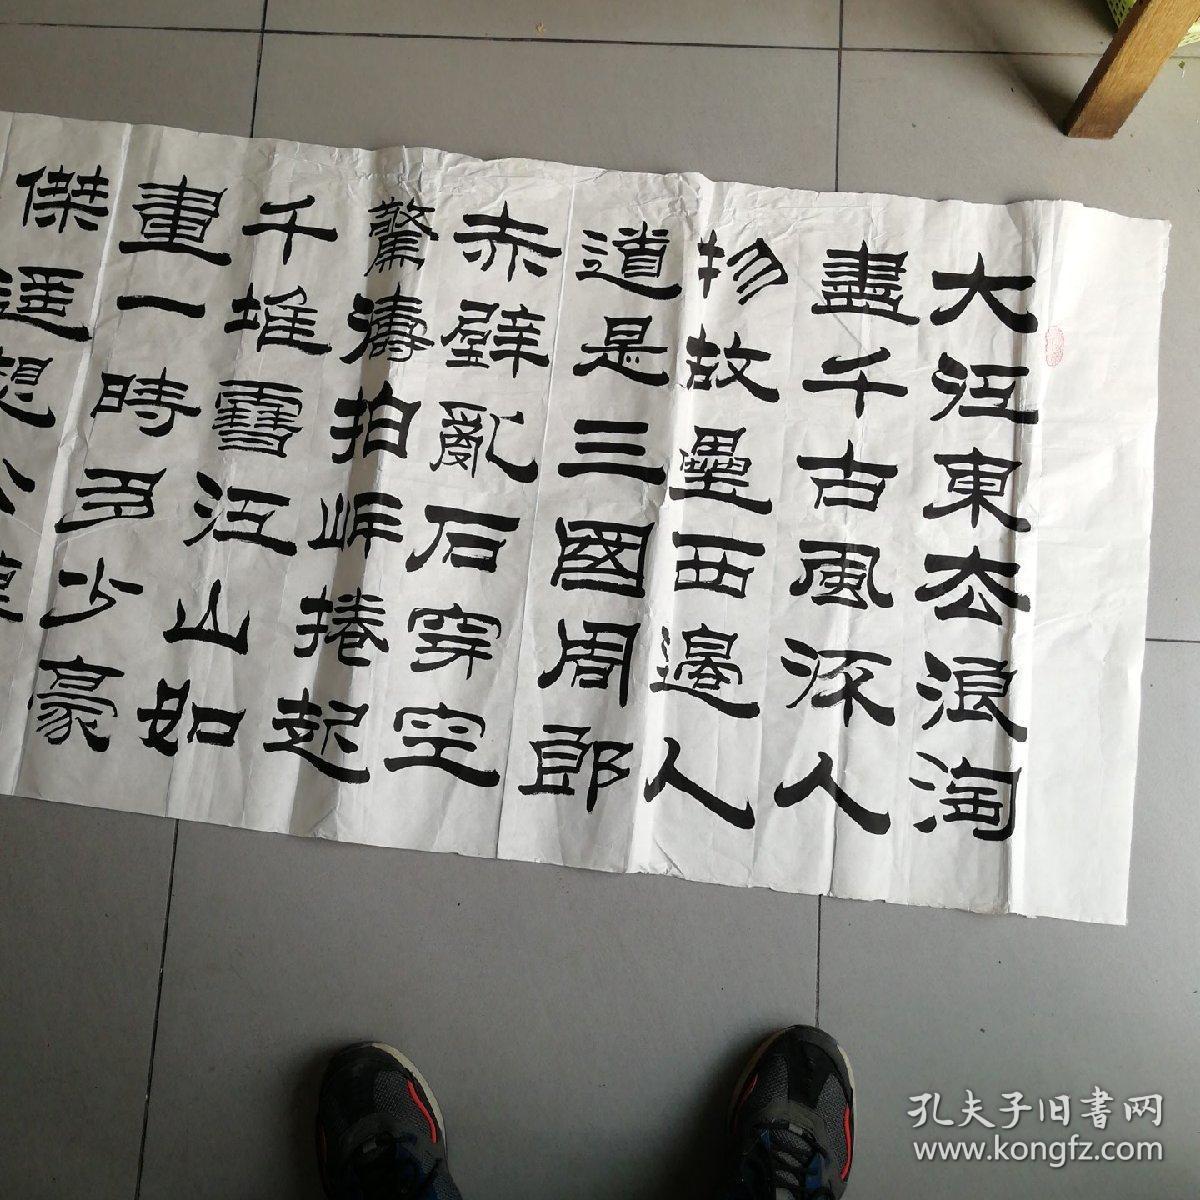 大江東去浪淘
盡千古風流人
物故壘西邊人
道是三國周郎
赤壁亂石穿空
驚濤拍岸捲起
千堆雪江山如
畫一時多少豪
傑遥想
孔夫子旧書网
www.kongfz.com